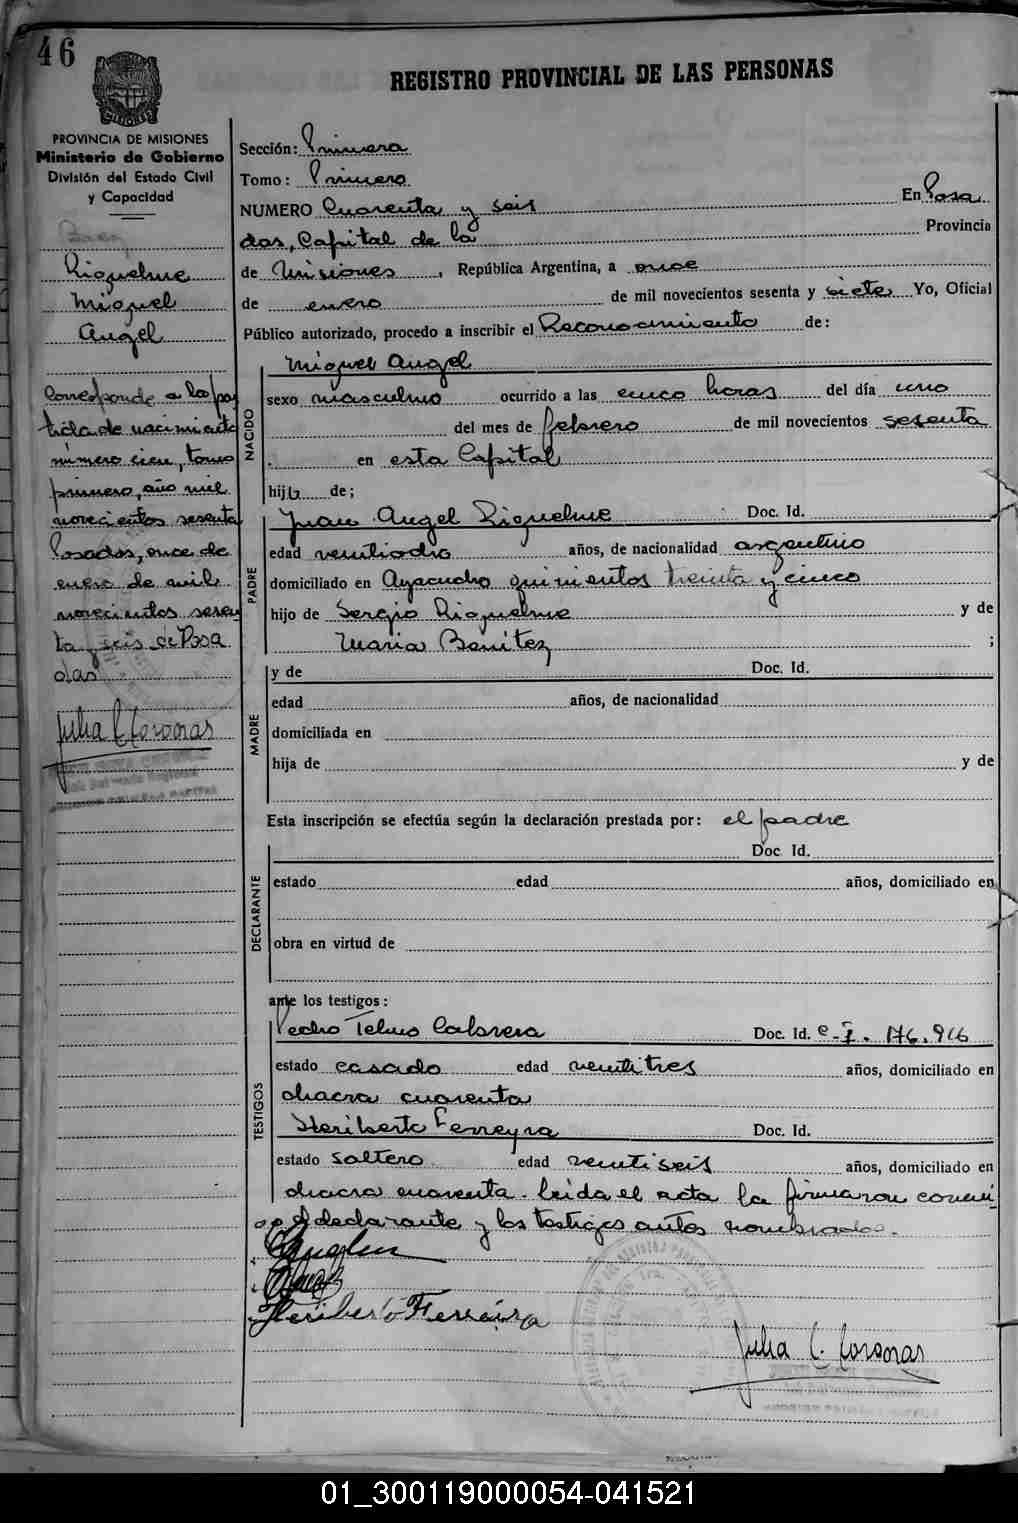 46
REGISTRO PROVINCIAL DE LAS PERSONAS
MISIONES
PROVINCIA DE MISIONES
Ministerio de Gobierno
División del Estado Civil
y Capacidad
Riquelme
Miguel
Angel
Corresponde a la par
tida de nacimiento
número cien, tomo
primero, año mil
novecientos sesenta
Posadas, once de
enero de mil
novecientos sesen
ta y seis de Posa
das
Julia C. Coronas
Sección: Primera
Tomo: Primero
NUMERO Cuarenta y seis En Posa
das, Capital de la Provincia
de Misiones, República Argentina, a once
de enero de mil novecientos sesenta y siete Yo, Oficial
Público autorizado, procedo a inscribir el Reconocimiento de:
NACIDO
Miguel Angel
sexo masculino ocurrido a las cinco horas del día uno
del mes de febrero de mil novecientos sesenta
en esta Capital
hijo de;
PADRE
Juan Angel Riquelme Doc. Id.
edad veintiocho años, de nacionalidad argentino
domiciliado en Ayacucho quinientos treinta y cinco
hijo de Sergio Riquelme y de
Maria Benitez ;
MADRE
y de Doc. Id.
edad años, de nacionalidad
domiciliada en
hija de y de
Esta inscripción se efectúa según la declaración prestada por: el padre
DECLARANTE
Doc. Id.
estado edad años, domiciliado en
obra en virtud de
ante los testigos:
TESTIGOS
Pedro Telmo Cabrera Doc. Id. C. I. 176.916
estado casado edad veintitres años, domiciliado en
chacra cuarenta
Heriberto Ferreyra Doc. Id.
estado soltero edad veintiseis años, domiciliado en
chacra cuarenta. Leida el acta la firmaron conmi
go el declarante y los testigos antes nombrados.
Heriberto Ferreira
Julia C. Coronas
01_300119000054-041521